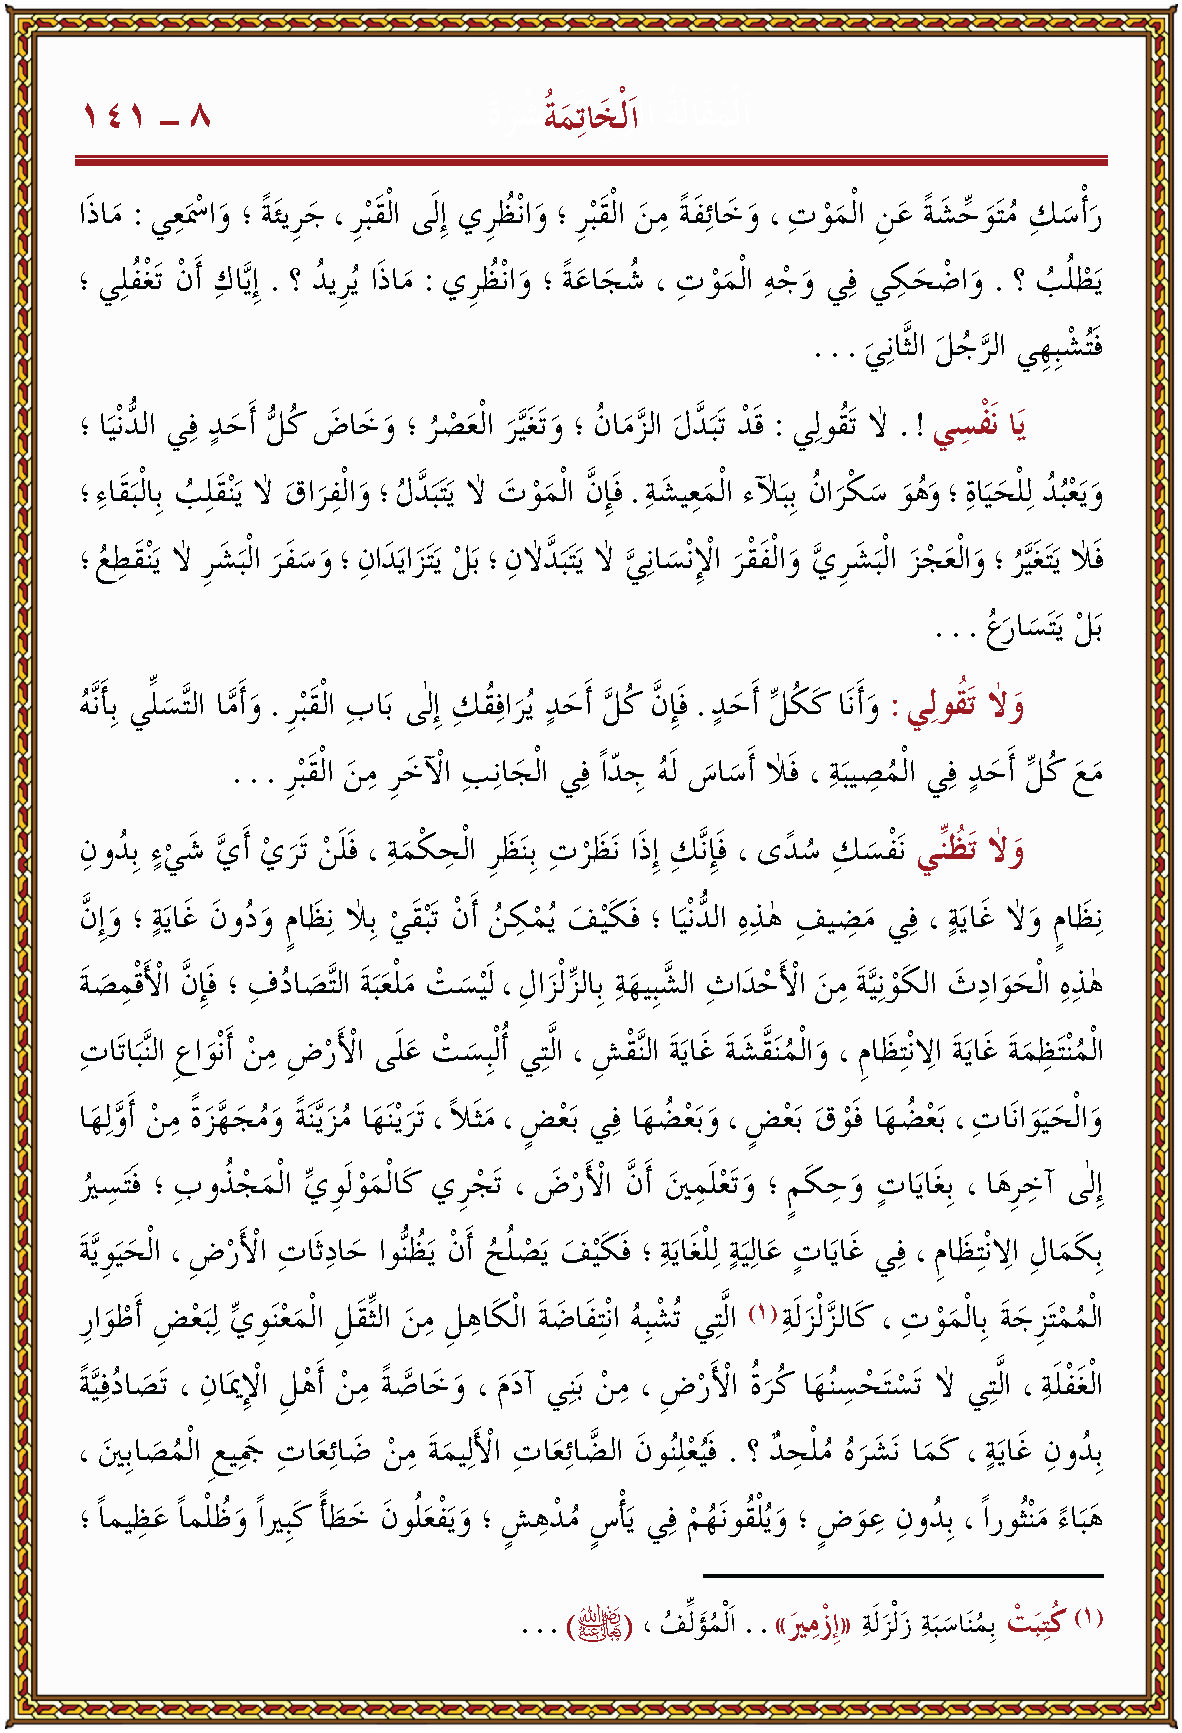 اَلْخَاتِمَةُ ٨ ـ ١٤١
رَأْسَكِ مُتَوَحِّشَةً عَنِ الْمَوْتِ ، وَخَائِفَةً مِنَ الْقَبْرِ ؛ وَانْظُرِي إِلَى الْقَبْرِ ، جَرِيئَةً ؛ وَاسْمَعِي : مَاذَا
يَطْلُبُ ؟ . وَاضْحَكِي فِي وَجْهِ الْمَوْتِ ، شُجَاعَةً ؛ وَانْظُرِي : مَاذَا يُرِيدُ ؟ . إِيَّاكِ أَنْ تَغْفُلِي ؛
فَتُشْبِهِي الرَّجُلَ الثَّانِيَ . . .
يَا نَفْسِي ! . لاٰ تَقُولِي : قَدْ تَبَدَّلَ الزَّمَانُ ؛ وَتَغَيَّرَ الْعَصْرُ ؛ وَخَاضَ كُلُّ أَحَدٍ فِي الدُّنْيَا ؛
وَيَعْبُدُ لِلْحَيَاةِ ؛ وَهُوَ سَكْرَانُ بِبَلاٰءِ الْمَعِيشَةِ . فَإِنَّ الْمَوْتَ لاٰ يَتَبَدَّلُ ؛ وَالْفِرَاقَ لاٰ يَنْقَلِبُ بِالْبَقَاءِ ؛
فَلاٰ يَتَغَيَّرُ ؛ وَالْعَجْزَ الْبَشَرِيَّ وَالْفَقْرَ الْإِنْسَانِيَّ لاٰ يَتَبَدَّلاٰنِ ؛ بَلْ يَتَزَايَدَانِ ؛ وَسَفَرَ الْبَشَرِ لاٰ يَنْقَطِعُ ؛
بَلْ يَتَسَارَعُ . . .
وَلاٰ تَقُولِي : وَأَنَا كَكُلِّ أَحَدٍ . فَإِنَّ كُلَّ أَحَدٍ يُرَافِقُكِ إِلٰى بَابِ الْقَبْرِ . وَأَمَّا التَّسَلِّي بِأَنَّهُ
مَعَ كُلِّ أَحَدٍ فِي الْمُصِيبَةِ ، فَلاٰ أَسَاسَ لَهُ جِدّاً فِي الْجَانِبِ الْآخَرِ مِنَ الْقَبْرِ . . .
وَلاٰ تَظُنِّي نَفْسَكِ سُدًى ، فَإِنَّكِ إِذَا نَظَرْتِ بِنَظَرِ الْحِكْمَةِ ، فَلَنْ تَرَيْ أَيَّ شَيْءٍ بِدُونِ
نِظَامٍ وَلاٰ غَايَةٍ ، فِي مَضِيفِ هٰذِهِ الدُّنْيَا ؛ فَكَيْفَ يُمْكِنُ أَنْ تَبْقَيْ بِلاٰ نِظَامٍ وَدُونَ غَايَةٍ ؛ وَإِنَّ
هٰذِهِ الْحَوَادِثَ الْكَوْنِيَّةَ مِنَ الْأَحْدَاثِ الشَّبِيهَةِ بِالزِّلْزَالِ ، لَيْسَتْ مَلْعَبَةَ التَّصَادُفِ ؛ فَإِنَّ الْأَقْمِصَةَ
الْمُنْتَظِمَةَ غَايَةَ الِانْتِظَامِ ، وَالْمُنَقَّشَةَ غَايَةَ النَّقْشِ ، الَّتِي أُلْبِسَتْ عَلَى الْأَرْضِ مِنْ أَنْوَاعِ النَّبَاتَاتِ
وَالْحَيَوَانَاتِ ، بَعْضُهَا فَوْقَ بَعْضٍ ، وَبَعْضُهَا فِي بَعْضٍ ، مَثَلاً ، تَرَيْنَهَا مُزَيَّنَةً وَمُجَهَّزَةً مِنْ أَوَّلِهَا
إِلٰى آخِرِهَا ، بِغَايَاتٍ وَحِكَمٍ ؛ وَتَعْلَمِينَ أَنَّ الْأَرْضَ ، تَجْرِي كَالْمَوْلَوِيِّ الْمَجْذُوبِ ؛ فَتَسِيرُ
بِكَمَالِ الِانْتِظَامِ ، فِي غَايَاتٍ عَالِيَةٍ لِلْغَايَةِ ؛ فَكَيْفَ يَصْلُحُ أَنْ يَظُنُّوا حَادِثَاتِ الْأَرْضِ ، الْحَيَوِيَّةَ
الْمُمْتَزِجَةَ بِالْمَوْتِ ، كَالزَّلْزَلَةِ (١) الَّتِي تُشْبِهُ انْتِفَاضَةَ الْكَاهِلِ مِنَ الثِّقَلِ الْمَعْنَوِيِّ لِبَعْضِ أَطْوَارِ
الْغَفْلَةِ ، الَّتِي لاٰ تَسْتَحْسِنُهَا كُرَةُ الْأَرْضِ ، مِنْ بَنِي آدَمَ ، وَخَاصَّةً مِنْ أَهْلِ الْإِيمَانِ ، تَصَادُفِيَّةً
بِدُونِ غَايَةٍ ، كَمَا نَشَرَهُ مُلْحِدٌ ؟ . فَيُعْلِنُونَ الضَّائِعَاتِ الْأَلِيمَةَ مِنْ ضَائِعَاتِ جَمِيعِ الْمُصَابِينَ ،
هَبَاءً مَنْثُوراً ، بِدُونِ عِوَضٍ ؛ وَيُلْقُونَهُمْ فِي يَأْسٍ مُدْهِشٍ ؛ وَيَفْعَلُونَ خَطَأً كَبِيراً وَظُلْماً عَظِيماً ؛
(١) كُتِبَتْ بِمُنَاسَبَةِ زَلْزَلَةِ «إِزْمِيرَ» . . اَلْمُؤَلِّفُ ، (رَضِيَ اللهُ تَعَالَى عَنْهُ) . . .